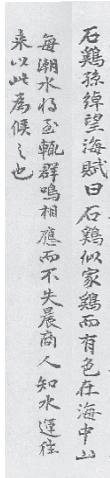 石鶏孫綽望海賦曰石鶏似家鶏而有色在海中山
每潮水将至輙群鳴相應而不失晨商人知水運往
来以此為候之也